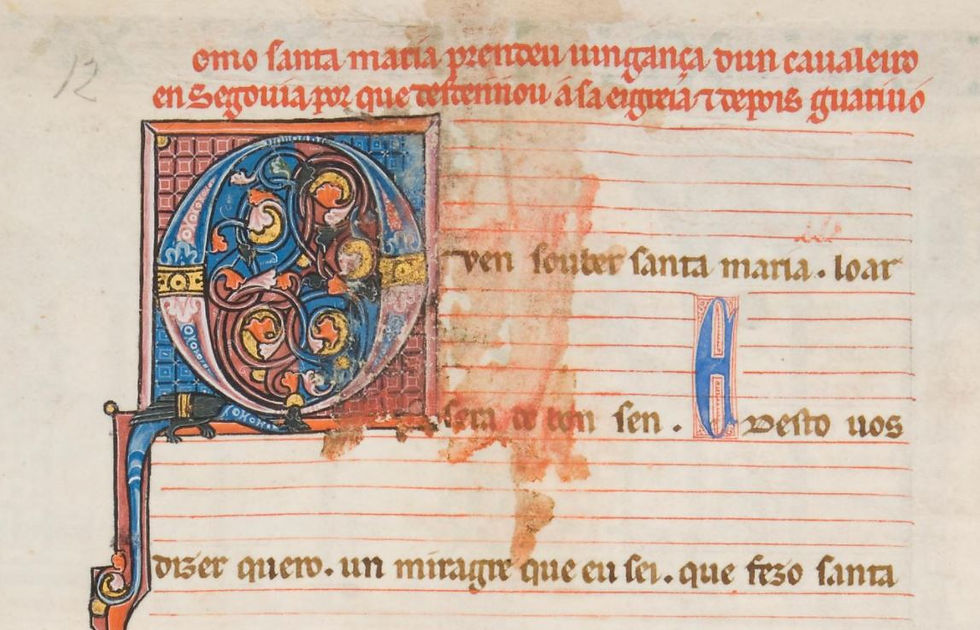 12
omo santa maria prendeu uingança dun caualeiro
en Segouia por que desdennou a sa eigreia ⁊ depois guariuo
Quen souber santa maria . loar
sera de bon sen . E Desto uos
dizer quero . un miragre que eu sei . que fezo santa